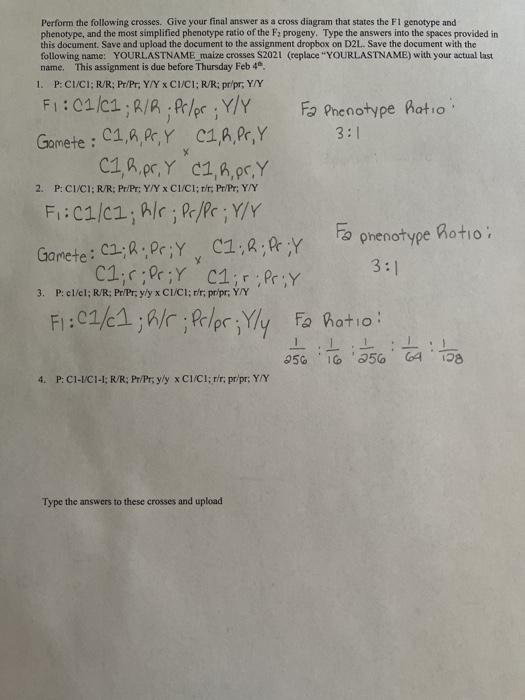 Perform the following crosses. Give your final answer as a cross diagram that states the F1 genotype and
phenotype, and the most simplified phenotype ratio of the F2 progeny. Type the answers into the spaces provided in
this document. Save and upload the document to the assignment dropbox on D2L. Save the document with the
following name: YOURLASTNAME_maize crosses S2021 (replace "YOURLASTNAME) with your actual last
name. This assignment is due before Thursday Feb 4th.
1. P: C1/C1; R/R; Pr/Pr; Y/Y x C1/C1; R/R; pr/pr; Y/Y
F1: C1/C1; R/R; Pr/pr; Y/Y F2 Phenotype Ratio:
Gamete: C1,R,Pr,Y x C1,R,Pr,Y 3:1
C1,R,pr,Y C1,R,pr,Y
2. P: C1/C1; R/R; Pr/Pr; Y/Y x C1/C1; r/r; Pr/Pr; Y/Y
F1: C1/C1; R/r; Pr/Pr; Y/Y F2 phenotype Ratio:
Gamete: C1;R;Pr;Y x C1;R;Pr;Y 3:1
C1;r;Pr;Y C1;r;Pr;Y
3. P: c1/c1; R/R; Pr/Pr; y/y x C1/C1; r/r; pr/pr; Y/Y
F1: C1/c1; R/r; Pr/pr; Y/y F2 Ratio:
1/256 : 1/16 : 1/256 : 1/64 : 1/128
4. P: C1-I/C1-I; R/R; Pr/Pr; y/y x C1/C1; r/r; pr/pr; Y/Y
Type the answers to these crosses and upload